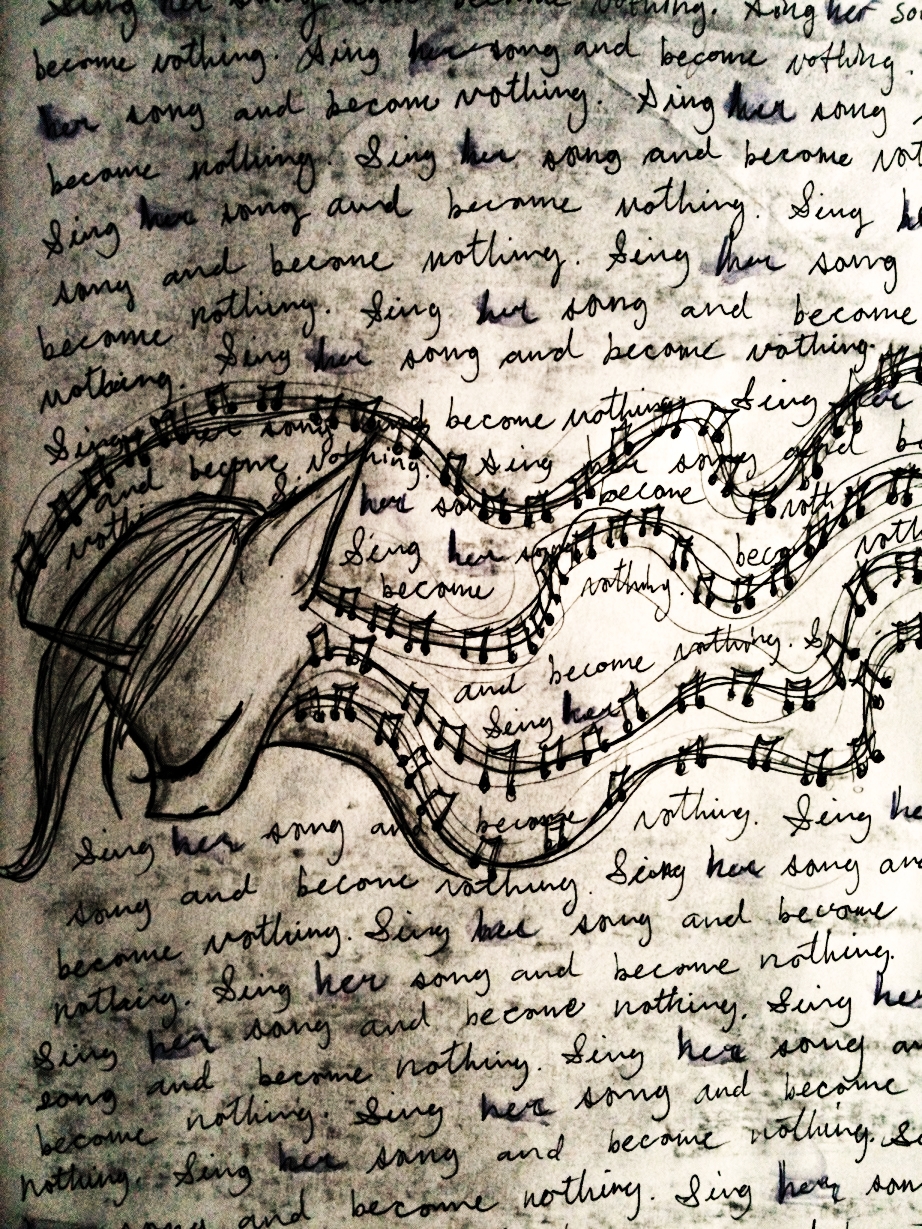 Sing her song and become nothing. Song her so
become nothing. Sing her song and become nothing.
her song and become nothing. Sing her song
become nothing. Sing her song and become not
Sing her song and become nothing. Sing h
song and become nothing. Sing her song
become nothing. Sing her song and become
nothing. Sing her song and become nothing.
Sing her song and become nothing. Sing her
and become nothing. Sing her song and b
nothi Si her so become noth
Sing her song beco noth
become nothing.
and become nothing. S
Sing her
Sing her song an become nothing. Sing he
song and become nothing. Sing her song an
become nothing. Sing her song and become
nothing. Sing her song and become nothing.
Sing her song and become nothing. Sing her
song and become nothing. Sing her song an
become nothing. Sing her song and become
nothing. Sing her song and become nothing. S
song and become nothing. Sing her son